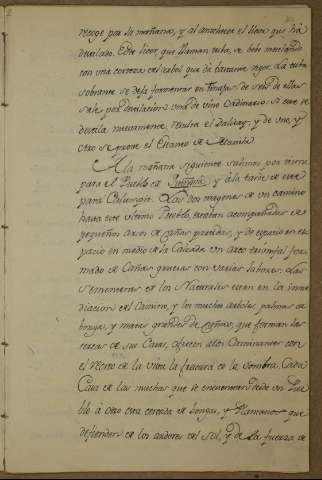 recoge por la mañana, y al anochecer el licor que ha
destilado. Este licor, que llaman tuba, se bebe mezclando
con una corteza de árbol que da bastante vigor. La tuba
sobrante se deja fermentar en tinajas, de seis de ellas
sale por destilacion una de vino ordinario. Si este se
destila nuevamente, resulta el Dalisay, y de uno, y
otro se provee el Estanco de Manila.
A la mañana siguiente salimos por tierra
para el Pueblo de y á la tarde de este
para Calumpit. Las dos margenes de un camino
hasta este ultimo Pueblo, estaban acompañadas de
pequeños arcos de cañas prendas, y de espacio en es
pacio en medio de la Calzada un arco triunfal for
mado de Cañas gruesas con varias labores. Las
sementeras de los Naturales estan en la inme
diacion del Camino, y los muchos arboles palmas de
bonga, y matas grandes de cañas, que forman las
cercas de sus Casas, ofrecen altos Caminantes con
el recreo de la vista la frescura de la sombra. Cada
Casa de las muchas que se encuentran desde un Pue
blo á otro esta cercada de bongas, y Platanos que
defienden de los ardores del sol, y de la fuerza de